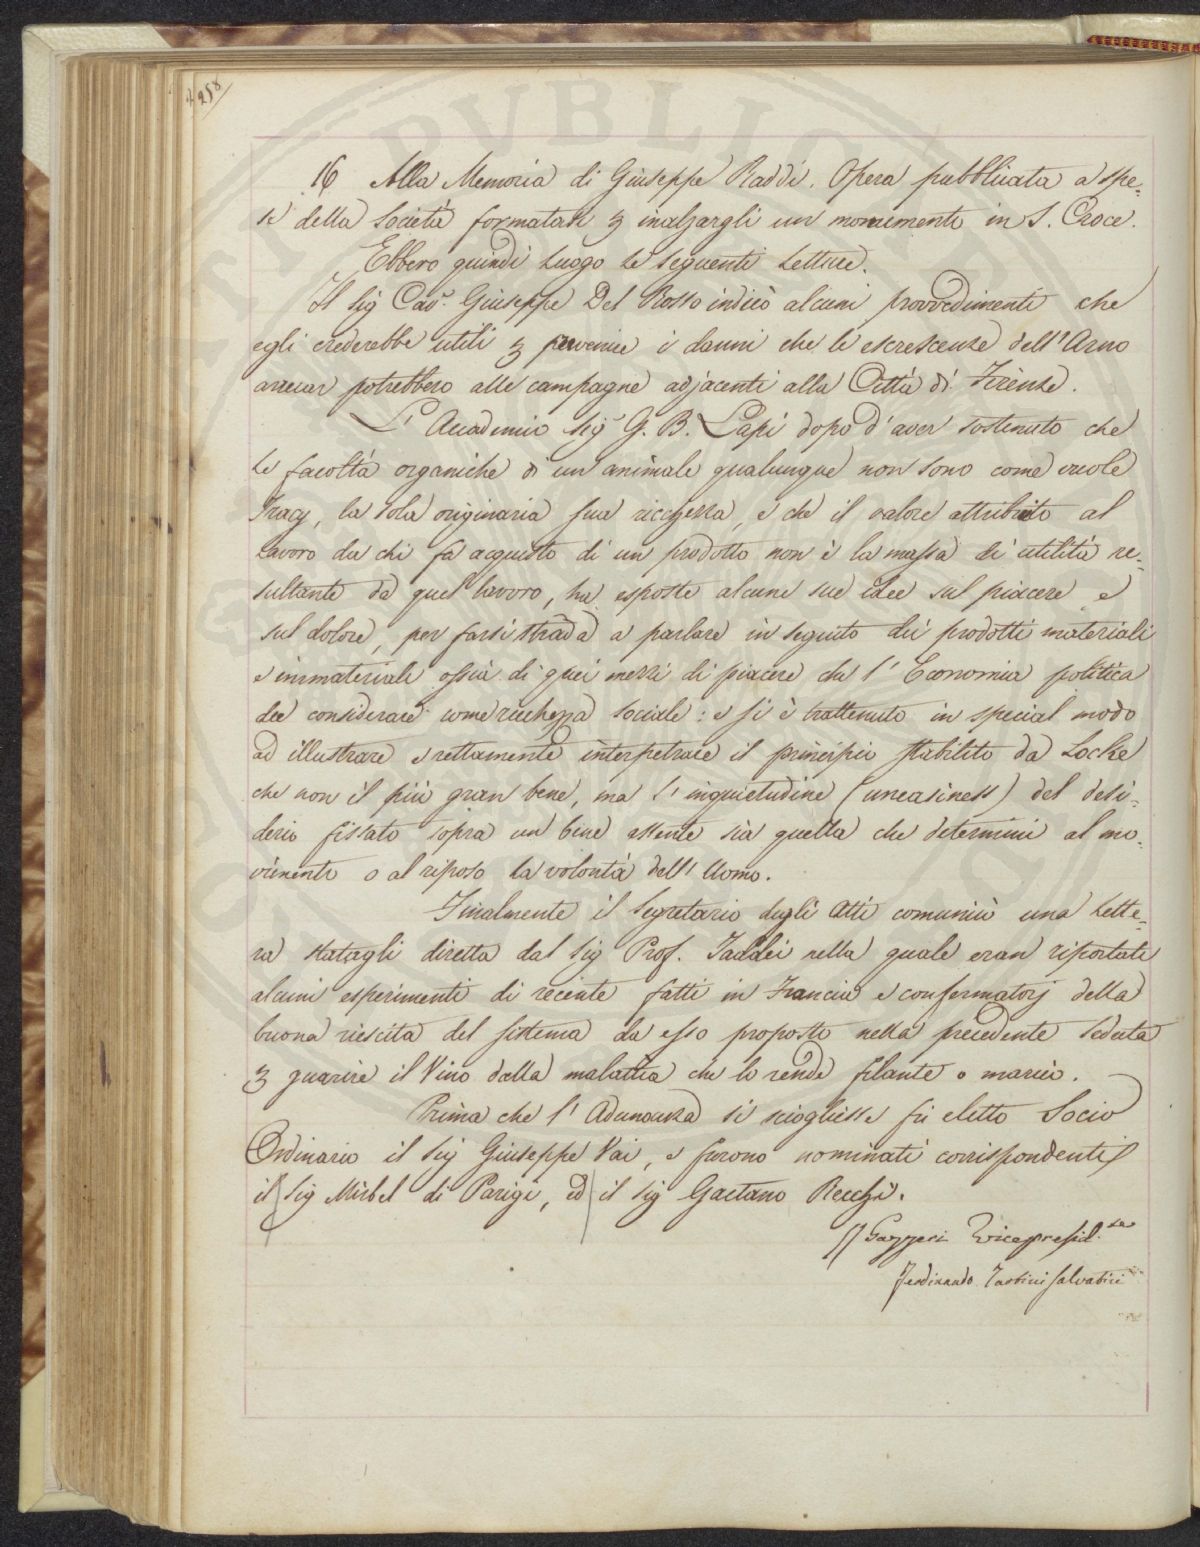 258
16 Alla Memoria di Giuseppe Raddi. Opera pubblicata a spe-
se della Società formatasi p inalzargli un monumento in S. Croce.
Ebbero quindi luogo le seguenti Letture.
Il Sig Cav.r Giuseppe Del Rosso indicò alcuni provvedimenti che
egli crederebbe utili p prevenire i danni che le escrescenze dell'Arno
arrecar potrebbero alle campagne adjacenti alla Città di Firenze.
L'Accademico Sig.r G. B. Lapi dopo d'aver sostenuto che
le facoltà organiche di un animale qualunque non sono come vuole
Tracy, la sola originaria sua ricchezza, e che il valore attribuito al
lavoro da chi fa acquisto di un prodotto non è la massa di utilità re-
sultante da quel lavoro, ha esposte alcune sue idee sul piacere e
sul dolore, per farsi strada a parlare in seguito dei prodotti materiali
e immateriali ossia di quei mezzi di piacere che l'Economia politica
dee considerare come ricchezza sociale: e si è trattenuto in special modo
ad illustrare e rettamente interpetrare il principio stabilito da Locke
che non il più gran bene, ma l'inquietudine (uneasiness) del desi-
derio fissato sopra un bene assente sia quella che determini al mo-
vimento o al riposo la volontà dell'Uomo.
Finalmente il Segretario degli Atti comunicò una Lette-
ra statagli diretta dal Sig Prof. Taddei nella quale eran riportati
alcuni esperimenti di recente fatti in Francia e confermatorj della
buona riescita del sistema da esso proposto nella precedente seduta
p guarire il Vino dalla malattia che lo rende filante o marcio.
Prima che l'Adunanza si sciogliesse fù eletto Socio
Ordinario il Sig Giuseppe Vai, e furono nominati corrispondenti
il Sig Mirbel di Parigi, ed il Sig Gaetano Recchi.
Gazzeri Vicepresid.te
Ferdinando Tartini Salvatici
PVBLICA